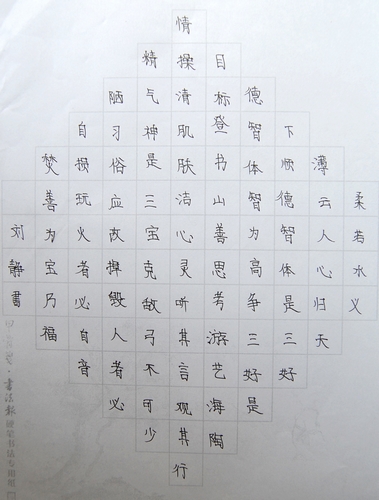 柔若水义
薄云人心归天
下顺德智体是三好
德智体智为高争三好是
目标登书山善思考游艺海陶
情操清肌肤洁心灵听其言观其行
精气神是三宝克敌弓不可少
陋习俗血故操毁人者必
自损玩火者必自音
焚善为宝乃福
刘静書